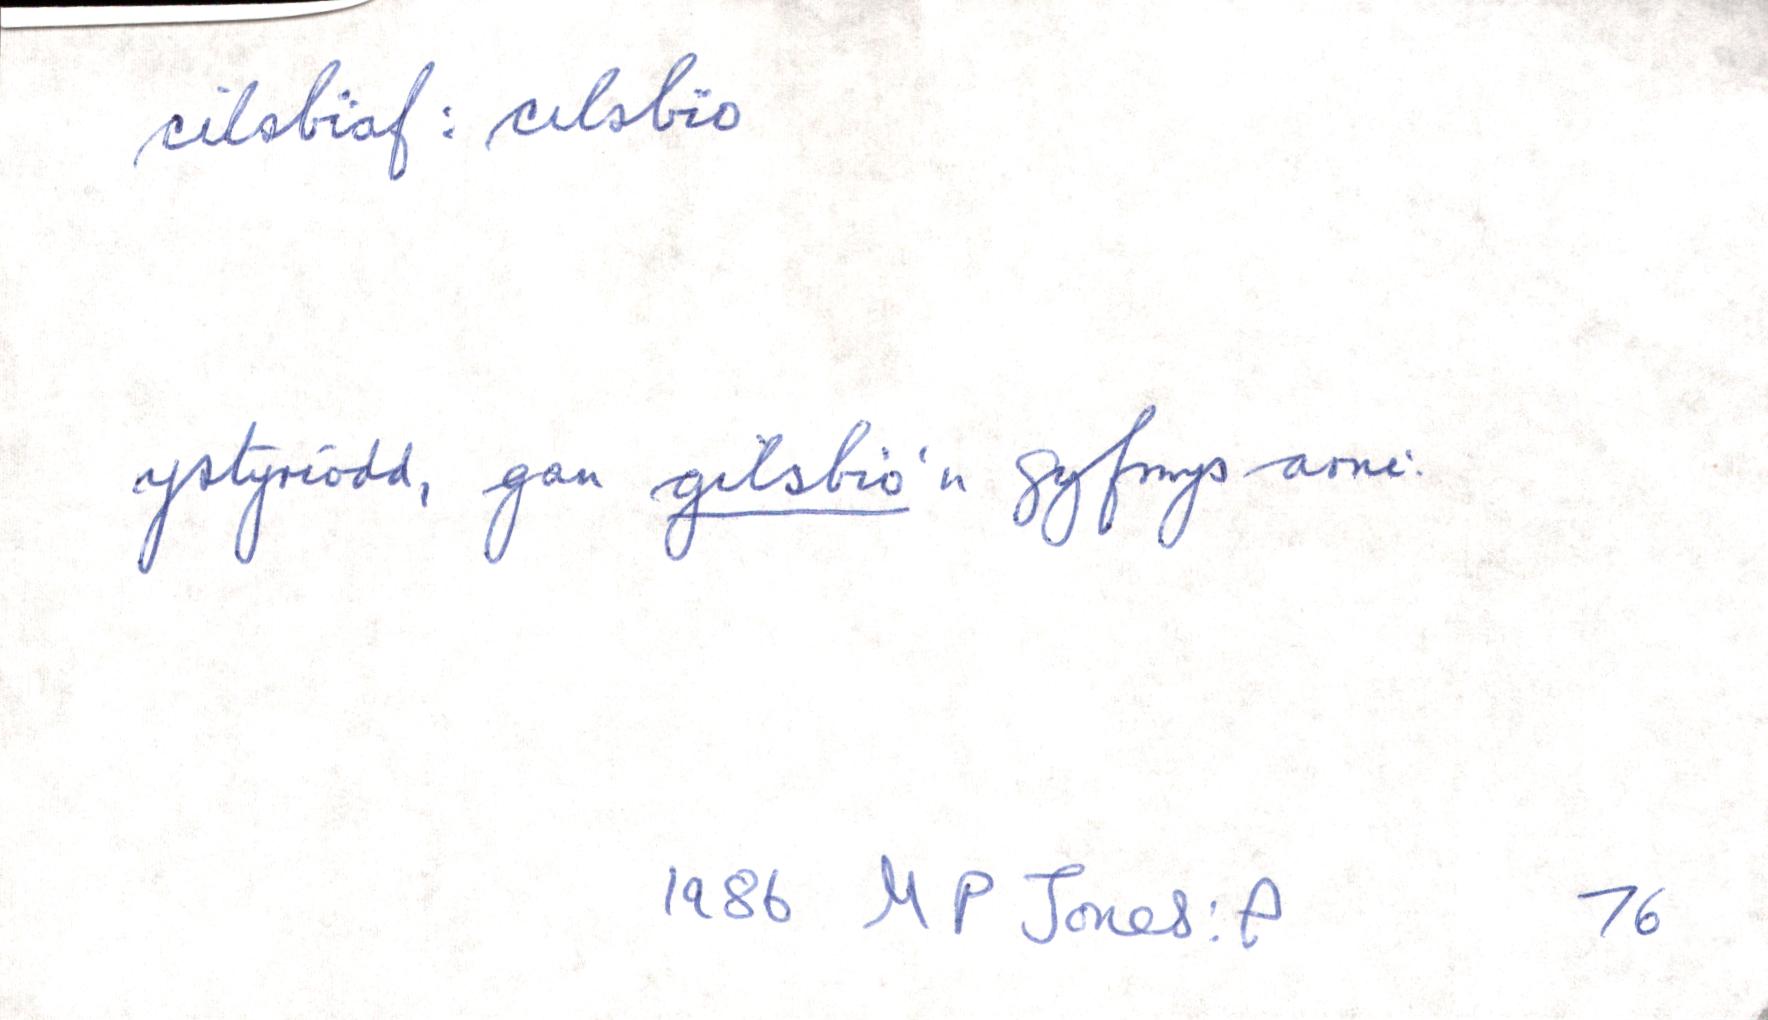 cilsbïaf: cilsbïo
ystyriodd, gan gilsbio'n gyfrwys arni.
1986 M P Jones: P 76